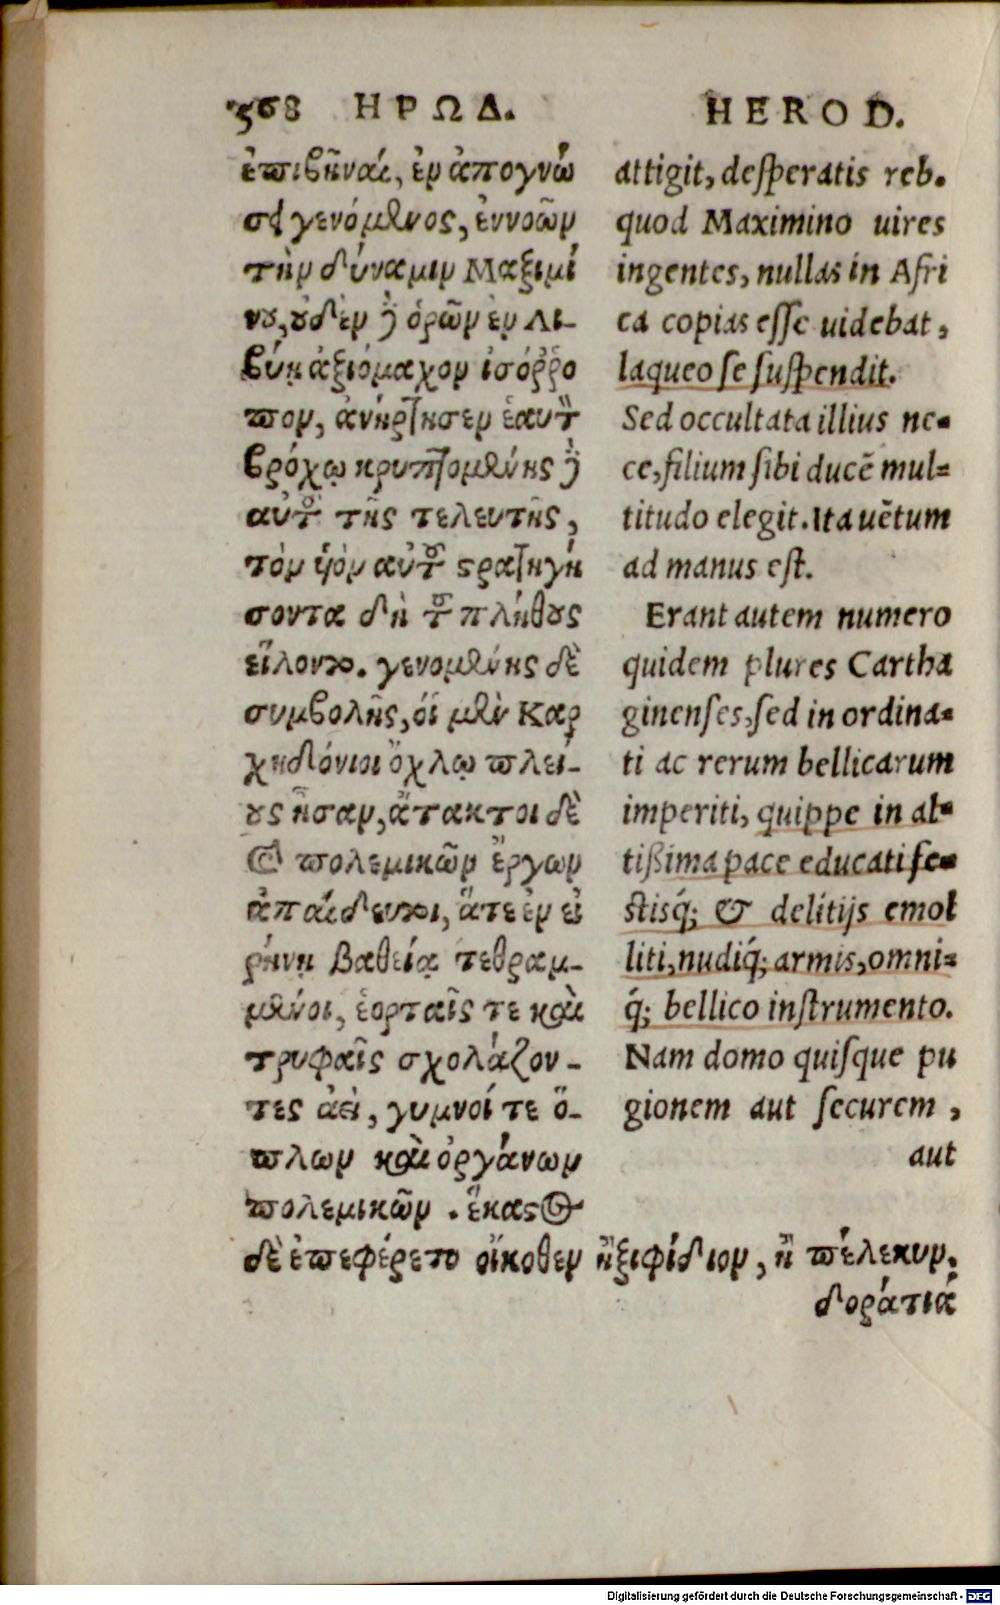 568 ΗΡΩΔ.
ἐπιβῆναι, ἐν ἀπογνώ
σει γενόμενος, ἐννοῶν
τὴν δύναμιν Μαξιμί
νου, οὐδὲν δὲ ὁρῶν ἐν Λι-
βύῃ ἀξιόμαχον ἰσόῤῥο
πον, ἀνήρτησεν ἑαυτὸν
βρόχῳ κρυπτομένης δὲ
αὐτοῦ τῆς τελευτῆς,
τὸν υἱὸν αὐτοῦ στρατηγή
σοντα δὴ τοῦ πλήθους
εἵλοντο. γενομένης δὲ
συμβολῆς, οἱ μὲν Καρ
χηδόνιοι ὄχλῳ πλεί-
ους ἦσαν, ἄτακτοι δὲ
καὶ πολεμικῶν ἔργων
ἀπαίδευτοι, ἅτε ἐν εἰ
ρήνῃ βαθείᾳ τεθραμ-
μένοι, ἑορταῖς τε καὶ
τρυφαῖς σχολάζον-
τες ἀεὶ, γυμνοί τε ὅ-
πλων καὶ ὀργάνων
πολεμικῶν. ἕκαστος
δὲ ἐπεφέρετο οἴκοθεν ἢ ξιφίδιον, ἢ πέλεκυν,
δοράτιά
HEROD.
attigit, desperatis reb.
quod Maximino uires
ingentes, nullas in Afri
ca copias esse uidebat,
laqueo se suspendit.
Sed occultata illius ne-
ce, filium sibi ducē mul-
titudo elegit. Ita uētum
ad manus est.
Erant autem numero
quidem plures Cartha
ginenses, sed in ordina-
ti ac rerum bellicarum
imperiti, quippe in al-
tißima pace educati fe-
stisq́; & delitijs emol
liti, nudiq́; armis, omni-
q́; bellico instrumento.
Nam domo quisque pu
gionem aut securem,
aut
Digitalisierung gefördert durch die Deutsche Forschungsgemeinschaft - DFG